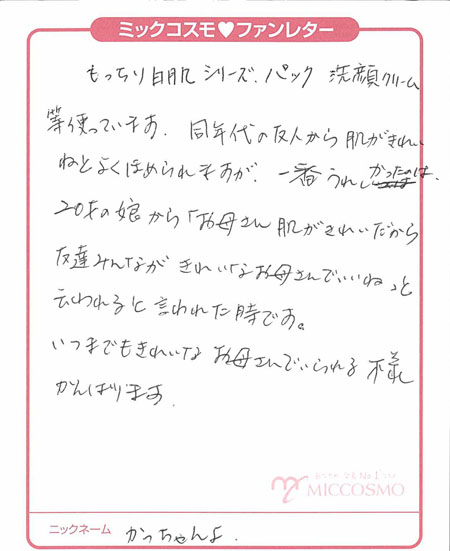 ミックコスモ♥ファンレター
もっちり白肌シリーズ、パック 洗顔クリーム
等使っています。同年代の友人から肌がきれい
ねとよくほめられますが、一番うれしかったのは、
20才の娘から「お母さん肌がきれいだから
友達みんなが きれいなお母さんでいいね」と
云われると言われた時です。
いつまでもきれいな お母さんでいられる様
がんばります。
MICCOSMO
ニックネーム かっちゃんよ.